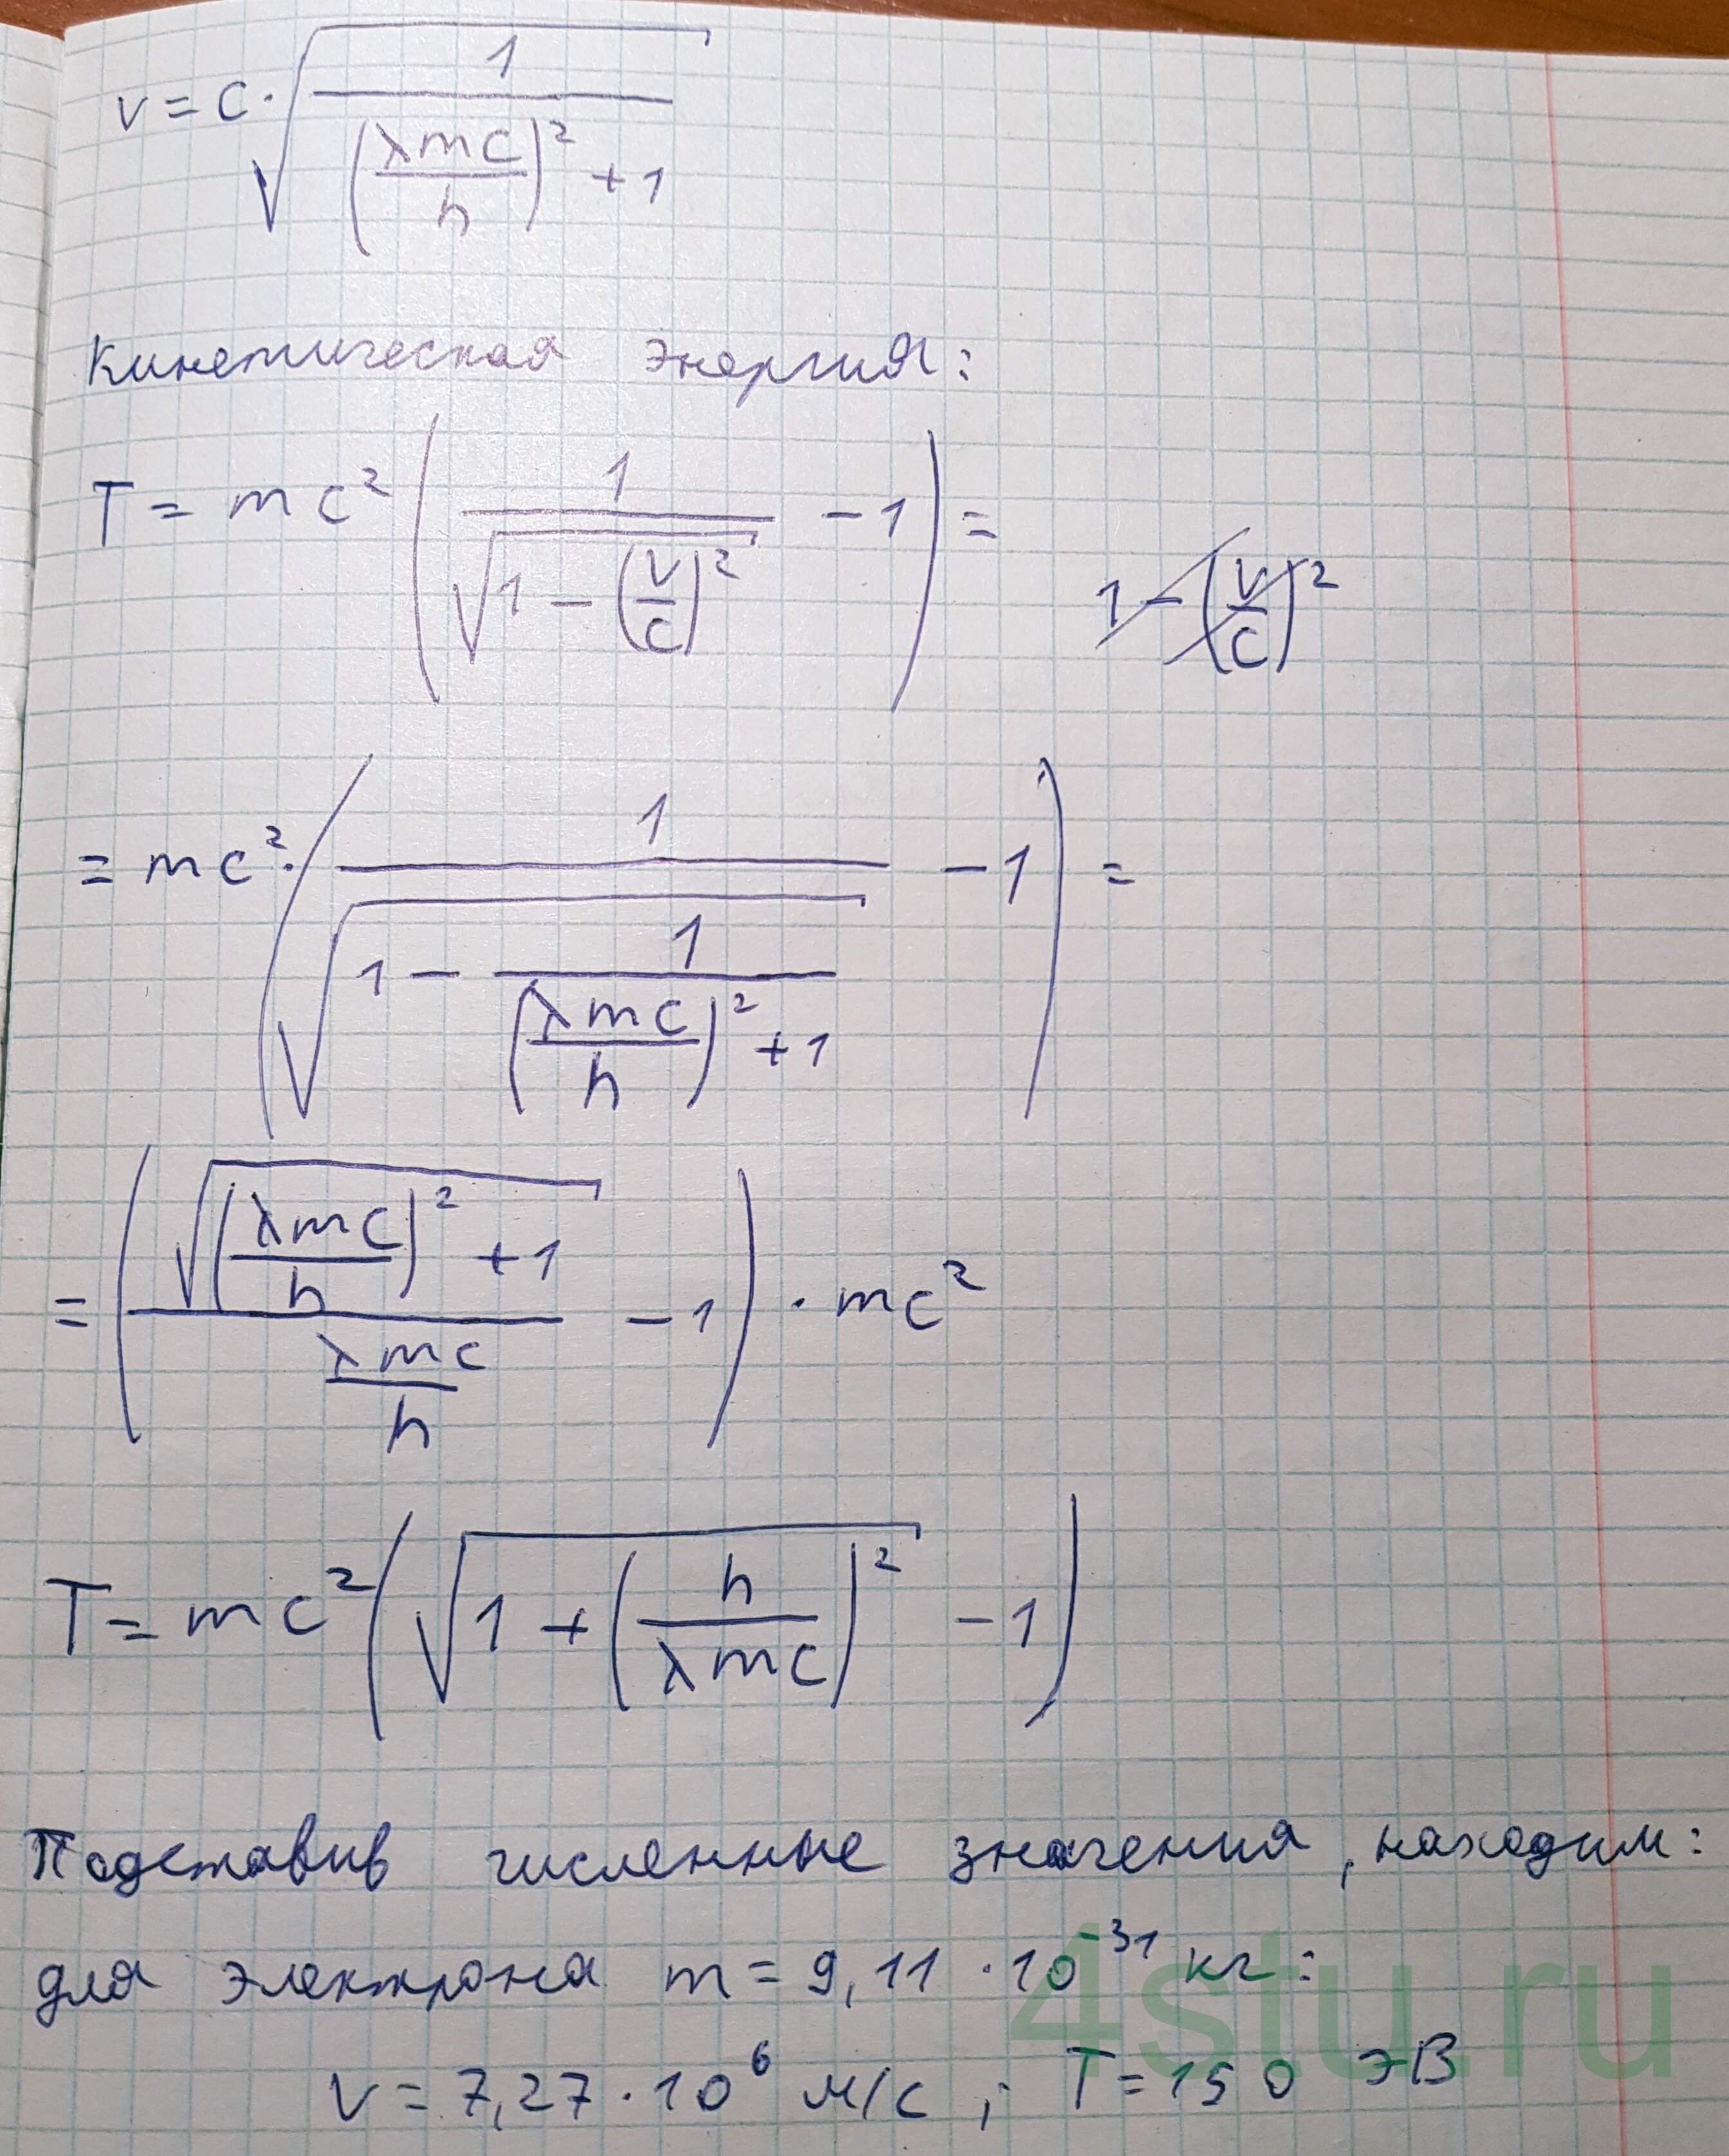 v = c · √(1 / ((λmc/h)² + 1))
Кинетическая энергия:
T = mc² (1 / √(1 − (v/c)²) − 1) =
1 − (v/c)²
= mc² · (1 / √(1 − 1 / ((λmc/h)² + 1)) − 1) =
= (√((λmc/h)² + 1) / (λmc/h) − 1) · mc²
T = mc² (√(1 + (h/λmc)²) − 1)
Подставив численные значения, находим:
для электрона m = 9,11 · 10⁻³¹ кг:
v = 7,27 · 10⁶ м/с ; T = 150 эВ
4stu.ru